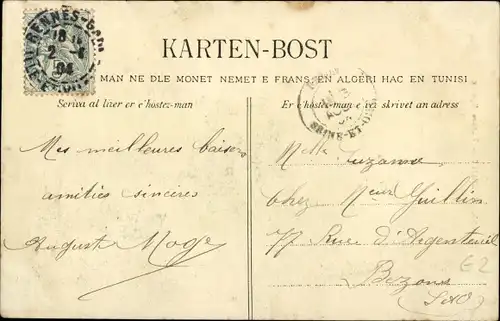 RENNES-GARE
18
2
04
KARTEN-BOST
MAN NE DLE MONET NEMET E FRANS, EN ALGERI HAC EN TUNISI
Scriva al lizer er c'hostez-man
Er c'hostez-man e vez skrivet an adress
SEINE-ET-OISE
Mes meilleures baisers
amitiés sincères
Auguste Moge
Melle Suzanne
chez Mr Guillin
77 Rue d'Argenteuil
Bezons
(S&O)
E2